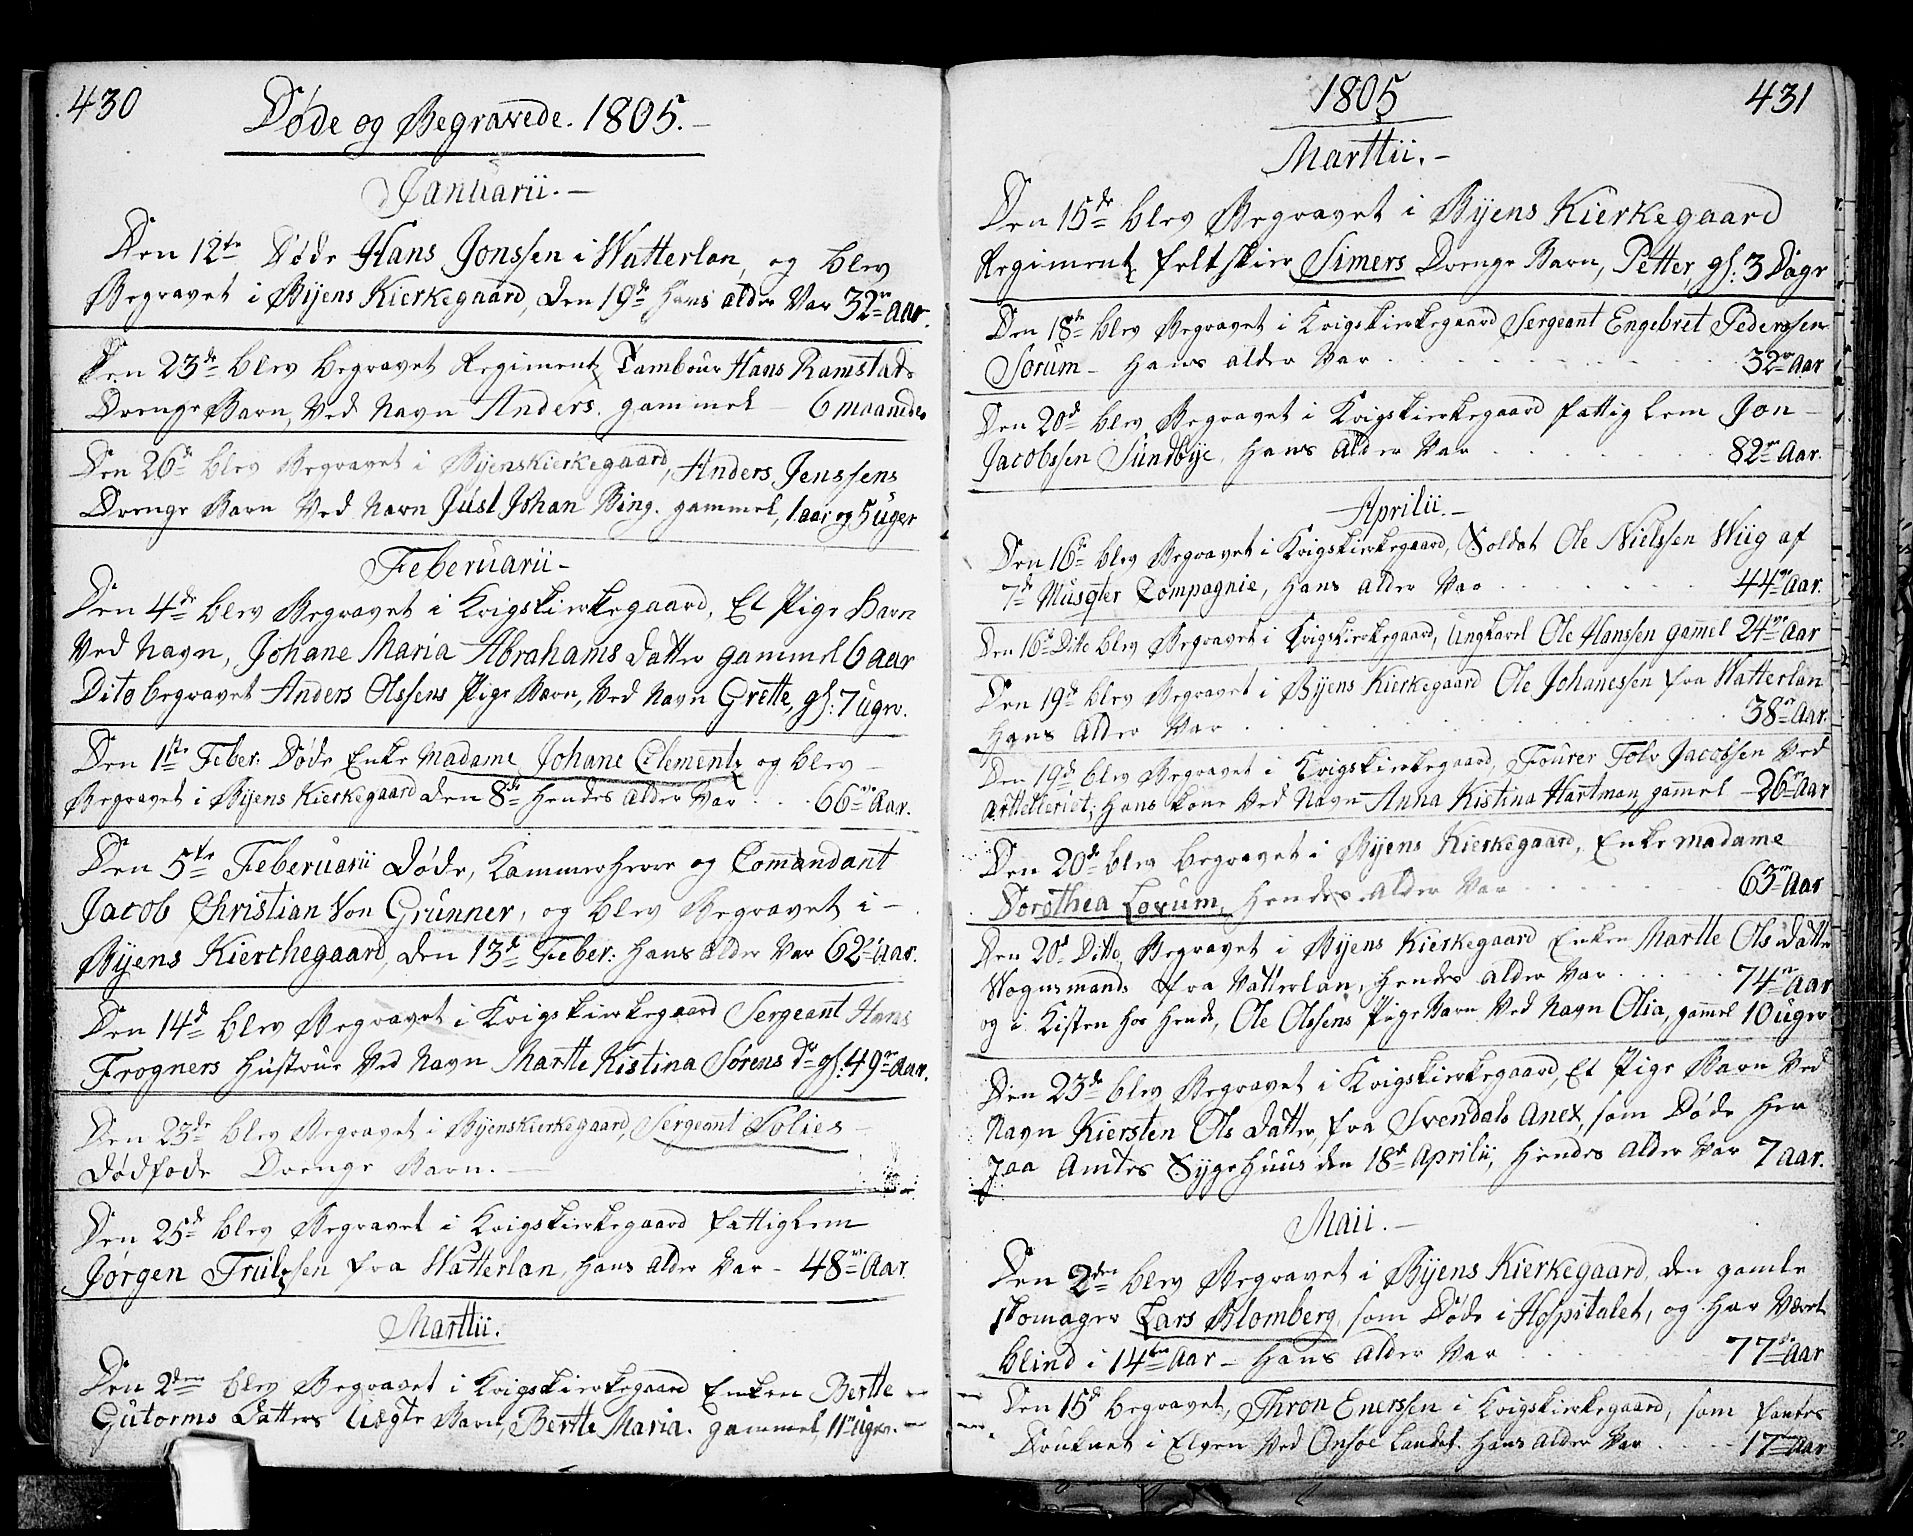 430
Døde og Begravede. 1805.
Januarii.
Den 12te Døde Hans Jonssen i Watterlan, og blev
Begravet i Byens Kierkegaard, den 19de hans alder var 32r Aar.
Den 23de blev begravet Regiments Tambour Hans Ramstads
Drenge Barn, Ved Navn Anders. gammel 6 maaneder
Den 26de blev Begravet i Byens Kierkegaard, Anders Jenssens
Drenge Barn Ved Navn Just Johan Bing. gammel, 1 aar og 5 uger
Februarii
Den 4de blev Begravet i Krigskierkegaard, Et Pige Barn
Ved Navn, Johane Maria Abrahams datter gammel 6 aar
Dito begravet Anders Olssens Pige Barn, Ved Navn Grette, gl: 7 uger.
Den 1ste Feber: Døde Enke Madame Johane Clementz og blev
Begravet i Byens Kierkegaard den 8de hendes alder Var 66 Aar.
Den 5te Februarii Døde, Kammerherre og Comandant
Jacob Christian Von Grünner, og blev Begravet i
Byens Kierchegaard, den 13de Feber: hans alder Var 62 Aar.
Den 14de blev Begravet i Krigskierkegaard Sergeant Hans
Frogners Hustrue Ved Navn Martte Kistina Sørens dr gl: 49 Aar.
Den 23de blev Begravet i Byens Kierkegaard, Sergeant Solies
Dødføde Drenge Barn.
Den 25de blev Begravet i Krigskierkegaard fattiglem
Jørgen Trulssen fra Watterlan, hans alder Var 48 Aar
Marttii.
Den 2den blev Begravet i Krigskierkegaard Enken Bertte
Gutorms Datters Uægte Barn, Bertte Maria. gammel, 11 uger.
1805
431
Marttii.
Den 15de blev Begravet i Byens Kierkegaard
Regiments feltskier Simers Drenge Barn, Petter, gl: 3 Dage
Den 18de blev Begravet i Krigskierkegaard Sergeant Engebret Pederssen
Sorum hans alder Var 32 Aar
Den 20de blev Begravet i Krigskierkegaard fattig lem Jon
Jacobssen Sundbye, hans alder Var 82 Aar.
Aprilii.
Den 16de blev Begravet i Krigskierkegaard, Soldat Ole Nielssen Wiig af
7de Musqter Compagnie, hans alder Var 44 Aar.
Den 16de Ditto blev Begravet i Krigskierkegaard, Ungkarl Ole Hanssen gamel 24 Aar
Den 19de blev Begravet i Byens Kierkegaard Ole Johanessen fra Watterlan
Hans Alder Var 38 Aar.
Den 19de blev Begravet i Krigskierkegaard, Fourer Tolv Jacobssen Ved
Arttelleriet; hans kone Ved Navn Anna Kistina Hartman, gammel 26 Aar
Den 20de blev begravet i Byens Kierkegaard, Enke Madame
Dorothea Lorum, hendes alder Var 63 Aar
Den 20de Ditto, Begravet i Byens Kierkegaard Enken Martte Ols datter
Wognmands fra Vatterlan, hendes alder Var 74 Aar
og i Kisten hos hende, Ole Olssens Pige Barn Ved Navn Olia, gammel 10 uger
Den 23de blev Begravet i Krigskierkegaard, Et Pige Barn Ved
Navn Kiersten Ols Datter, fra Svendals Anex, som Døde her
paa Amtes Syge Huus den 18de Aprilii, hendes alder Var 7 aar.
Maii.
Den 2den blev Begravet i Byens Kierkegaard, den gamle
skomager Lars Blomberg, som Døde i Hospitalet, og har Været
blind i 14ten Aar hans alder Var 77 Aar
Den 15de begravet, Thron Enerssen i Krigskierkegaard, som fantes
Druknet i Elven Ved Onsoe landet. hans alder Var 17 Aar